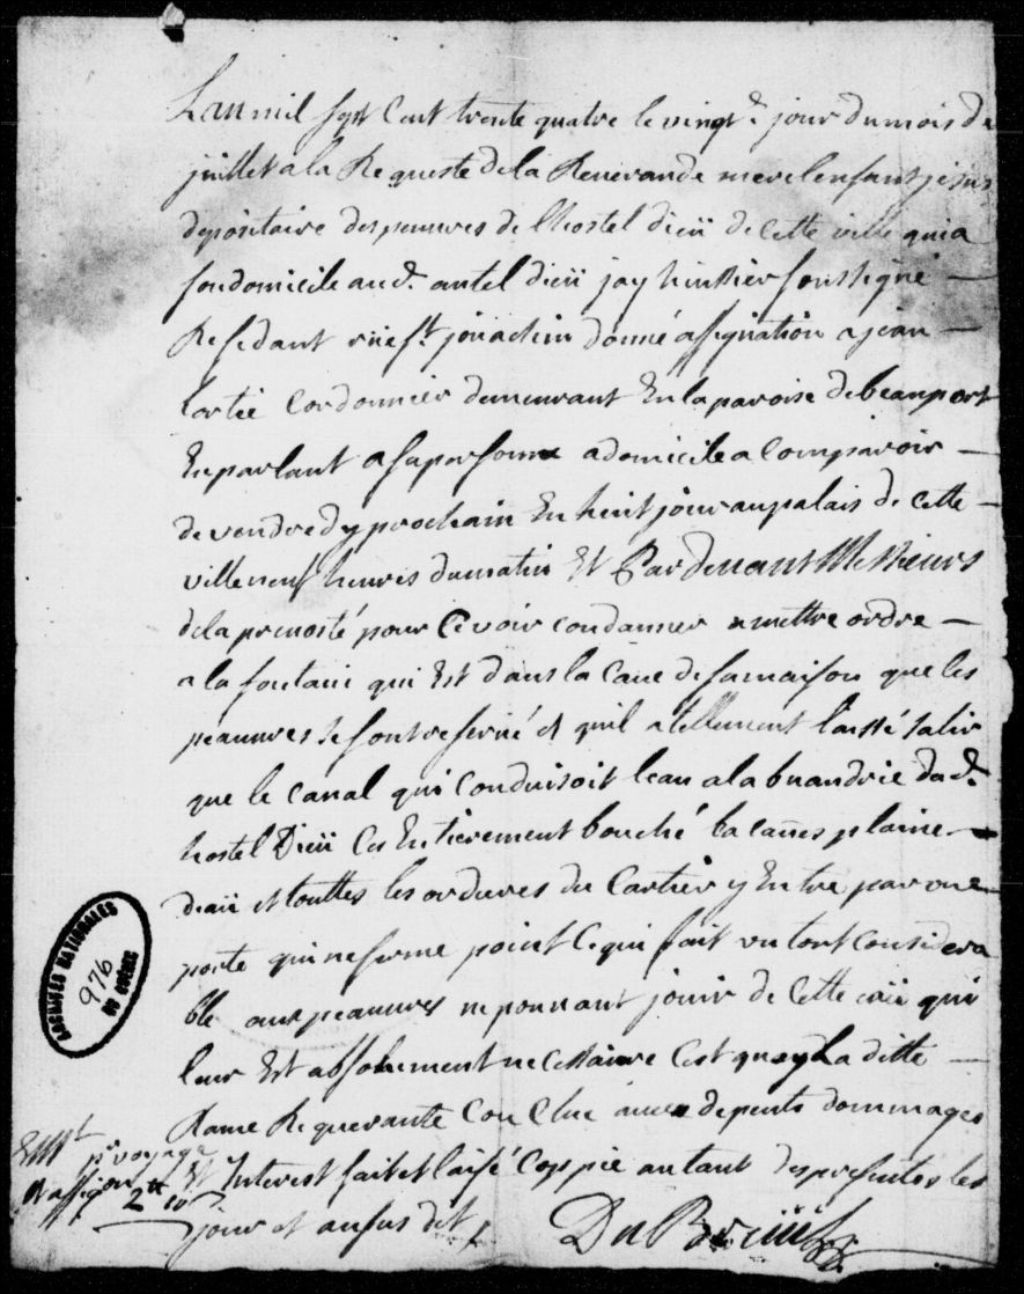 Lan mil sept Cent trente quatre le vingte jour dumois de
juillet ala Requeste dela Reverande mere lenfant jesus
depositaire des peauvres de lhostel dieü de Cette ville quia
son domicile aud. autel dieü jay huissier soussigné
Residant rüe st. joüachin donné assignation a jean
Cordonnier demeurant En la paroise de beauport
En parlant a sa personne a domicile a Comparoir
de vendredy prochain En huit jour au palais de Cette
ville neuf heures dumatin Et Pardevant Messieurs
dela prevosté pour Ce voir condamner a mettre ordre
a la fontaine qui Est dans la Cave de samaison que les
peauvres se sont reservé et quil a tellement laissé salir
que le Canal qui Conduisoit leau a la buandrie dud.
hostel Dieü Es Entierement bouché la caves plaine
deaü et touttes les ordures du Cartier y Entre par une
porte qui ne ferme point Ce qui fait un tort Considera
ble aux peauvres ne pouvant jouir de Cette eaü qui
leur Est absolument necessaire Cest quoy La ditte
Dame Requerante Conclue avec depents dommages
Et Interest fait et laissé Coppie autant des presentes les
jour et an sus dit
DuBreüil
pr voyage
2 10
ARCHIVES NATIONALES
DU QUÉBEC
976